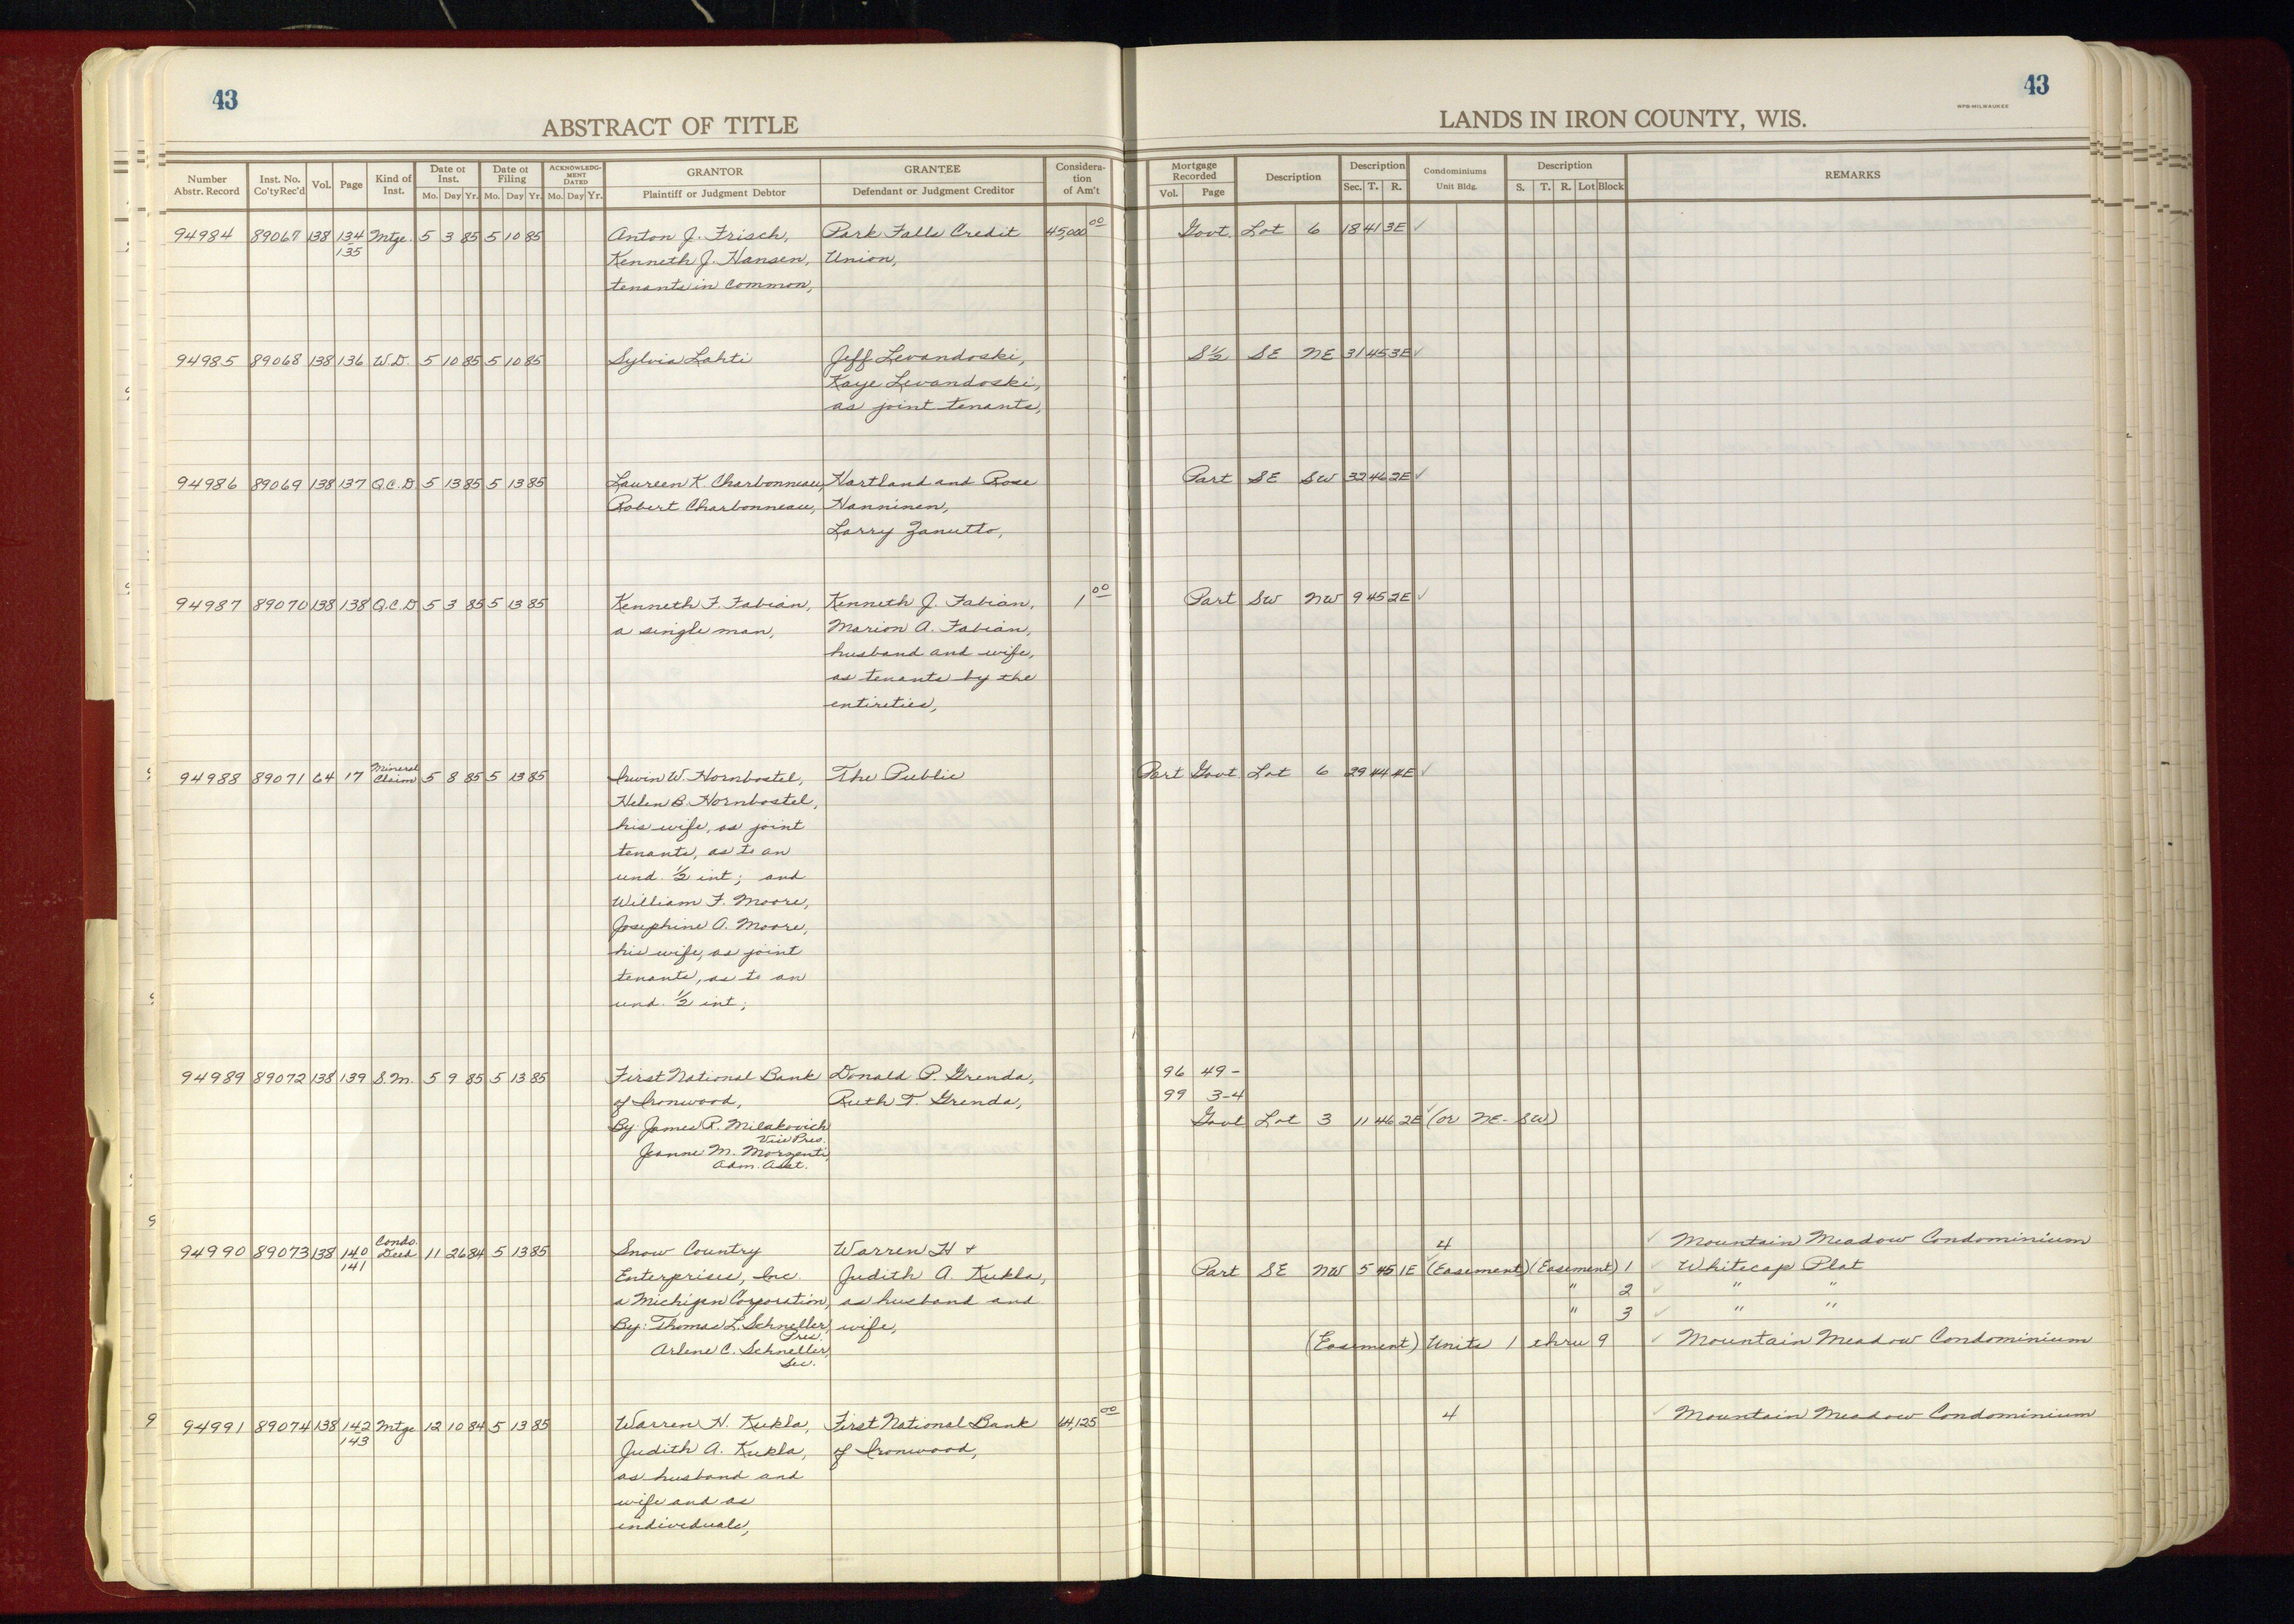 43
ABSTRACT OF TITLE
Number Abstr. Record | Inst. No. Co'ty Rec'd | Vol. | Page | Kind of Inst. | Date of Inst. Mo. Day Yr. | Date of Filing Mo. Day Yr. | ACKNOWLEDGMENT DATED Mo. Day Yr. | GRANTOR Plaintiff or Judgment Debtor | GRANTEE Defendant or Judgment Creditor | Consideration of Am't
94984 89067 138 134 Mtge. 5 3 85 5 10 85 Anton J. Frisch, Park Falls Credit 45,000 00
135 Kenneth J. Hansen, Union,
tenants in common,
94985 89068 138 136 W.D. 5 10 85 5 10 85 Sylvia Lahti Jeff Levandoski,
Kaye Levandoski,
as joint tenants,
94986 89069 138 137 Q.C.D. 5 13 85 5 13 85 Laureen K. Charbonneau, Hartland and Rose
Robert Charbonneau, Hanninen,
Larry Zanutto,
94987 89070 138 138 Q.C.D. 5 3 85 5 13 85 Kenneth F. Fabian, Kenneth J. Fabian, 1 00
a single man, Marion A. Fabian,
husband and wife,
as tenants by the
entireties,
94988 89071 64 17 Mineral Claim 5 8 85 5 13 85 Irwin W. Hornbostel, The Public
Helen B. Hornbostel,
his wife, as joint
tenants, as to an
und. 1/2 int; and
William F. Moore,
Josephine A. Moore,
his wife, as joint
tenants, as to an
und. 1/2 int;
94989 89072 138 139 S.M. 5 9 85 5 13 85 First National Bank Donald P. Grenda,
of Ironwood, Ruth T. Grenda,
By: James R. Milakovich
Vice Pres.
Jeanne M. Morzenti,
Adm. Asst.
94990 89073 138 140 Condo. Deed 11 26 84 5 13 85 Snow Country Warren H +
141 Enterprises, Inc. Judith A. Kukla,
a Michigan Corporation, as husband and
By: Thomas L. Schneller, wife,
Pres.
Arlene C. Schneller,
Sec.
9 94991 89074 138 142 Mtge 12 10 84 5 13 85 Warren H. Kukla, First National Bank 44,125 00
143 Judith A. Kukla, of Ironwood,
as husband and
wife and as
individuals,
43
WPB-MILWAUKEE
LANDS IN IRON COUNTY, WIS.
Mortgage Recorded Vol. Page | Description | Description Sec. T. R. | Condominiums Unit Bldg. | Description S. T. R. Lot Block | REMARKS
Govt. Lot 6 18 41 3E ✓
S½ SE NE 31 45 3E ✓
Part SE SW 32 46 2E ✓
Part SW NW 9 45 2E ✓
Part Govt Lot 6 29 44 4E ✓
96 49-
99 3-4
Govt Lot 3 11 46 2E ✓ (or NE-SW)
4 ✓ Mountain Meadow Condominium
Part SE NW 5 45 1E ✓ (Easement) (Easement) 1 ✓ Whitecap Plat
" 2 ✓ " "
" 3 ✓ " "
(Easement) Units 1 thru 9 ✓ Mountain Meadow Condominium
4 ✓ Mountain Meadow Condominium